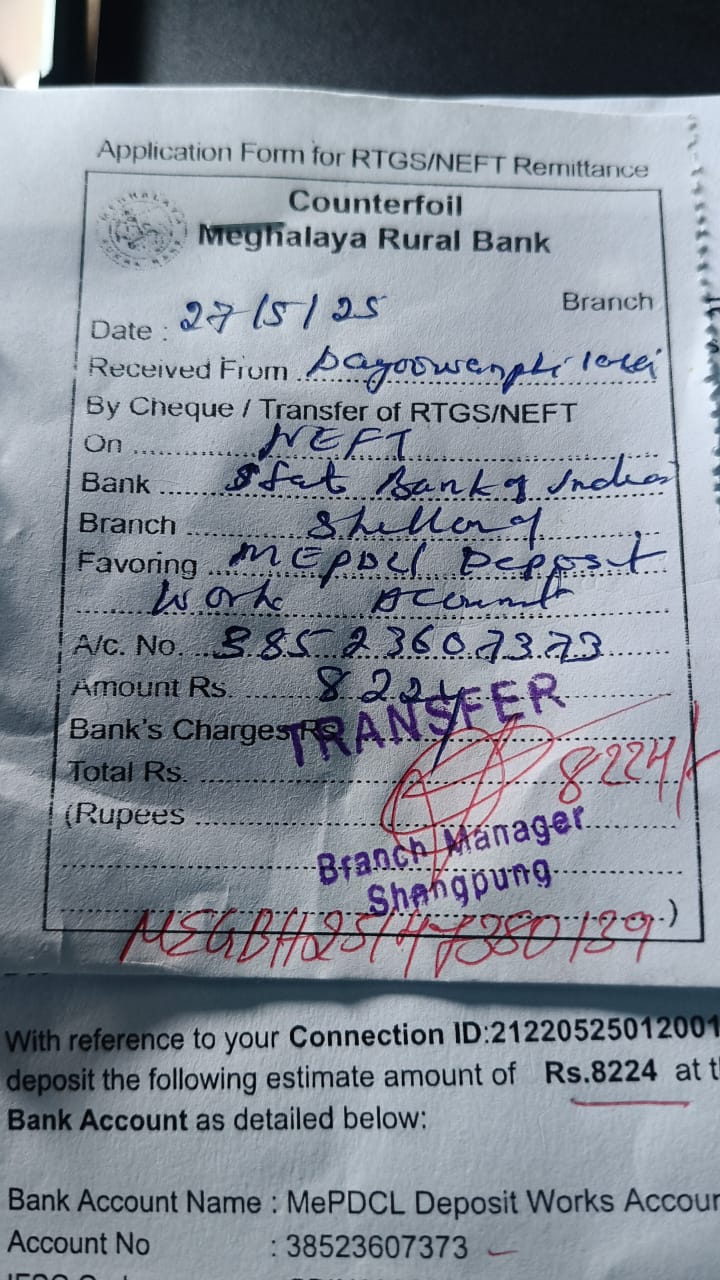 Application Form for RTGS/NEFT Remittance
Counterfoil
Meghalaya Rural Bank
Branch
Date : 27/5/25
Received From
By Cheque / Transfer of RTGS/NEFT
On NEFT
Bank Bank of India
Branch
Favoring MEPDCL Deposit
Work Account
A/c. No. 38523607373
Amount Rs. 8224
TRANSFER
Bank's Charges Rs
Total Rs. 8224/-
(Rupees
Branch Manager
Shangpung
)
With reference to your Connection ID:21220525012001
deposit the following estimate amount of Rs.8224 at
Bank Account as detailed below:
Bank Account Name : MePDCL Deposit Works Accou
Account No : 38523607373